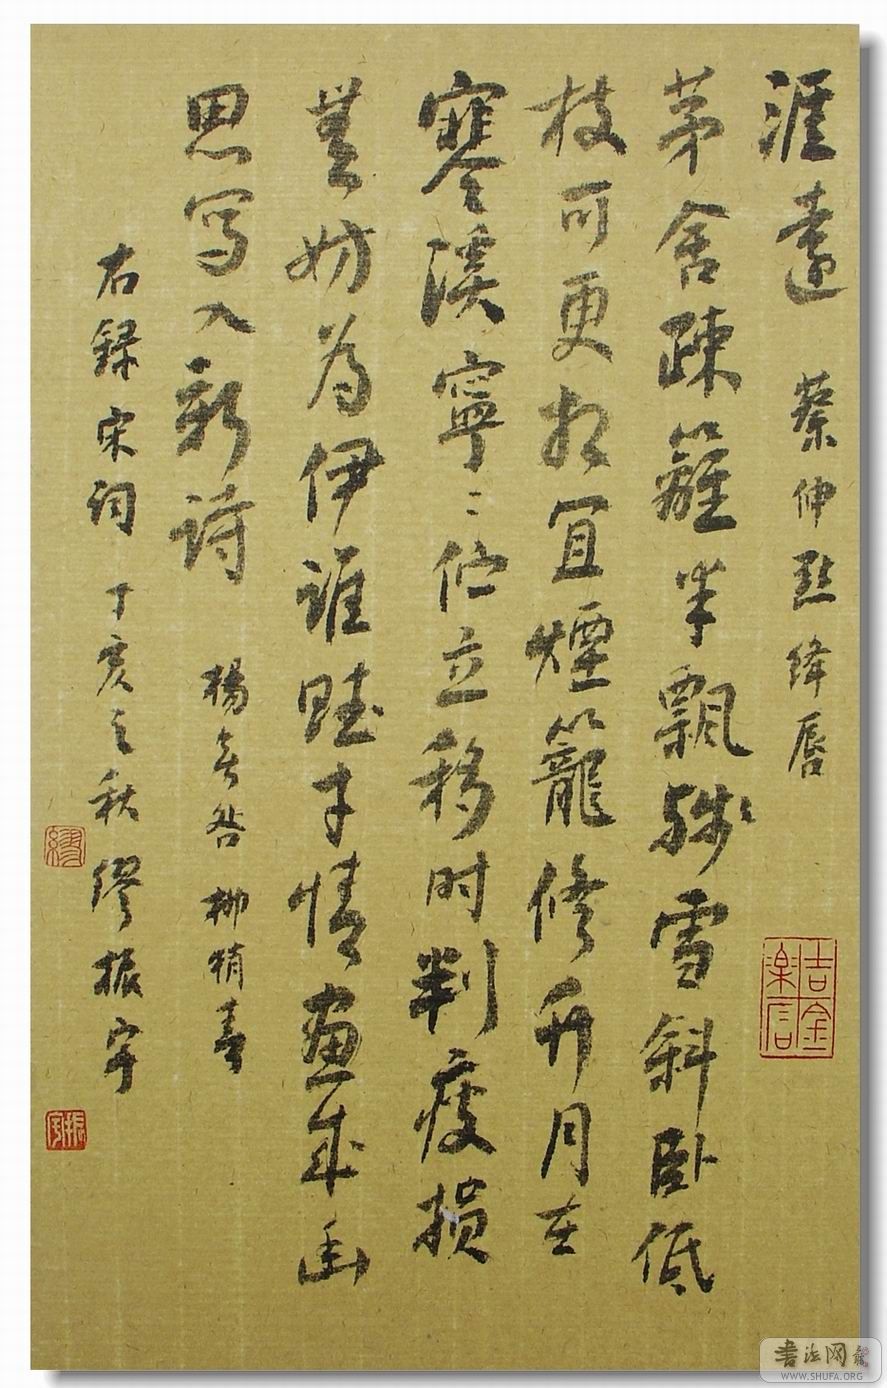 涯遠 蔡伸點絳唇
茅舍疎籬半飄殘雪斜卧低
枝可更相宜煙籠修竹月在
寒溪寧〻佇立移時判瘦損
無妨為伊誰賦才情畫成幽
思寫入新詩 楊無咎柳梢青
右録宋詞 丁亥之秋繆振宇
吉金樂石
繆
振宇
書法网
WWW.SHUFA.ORG